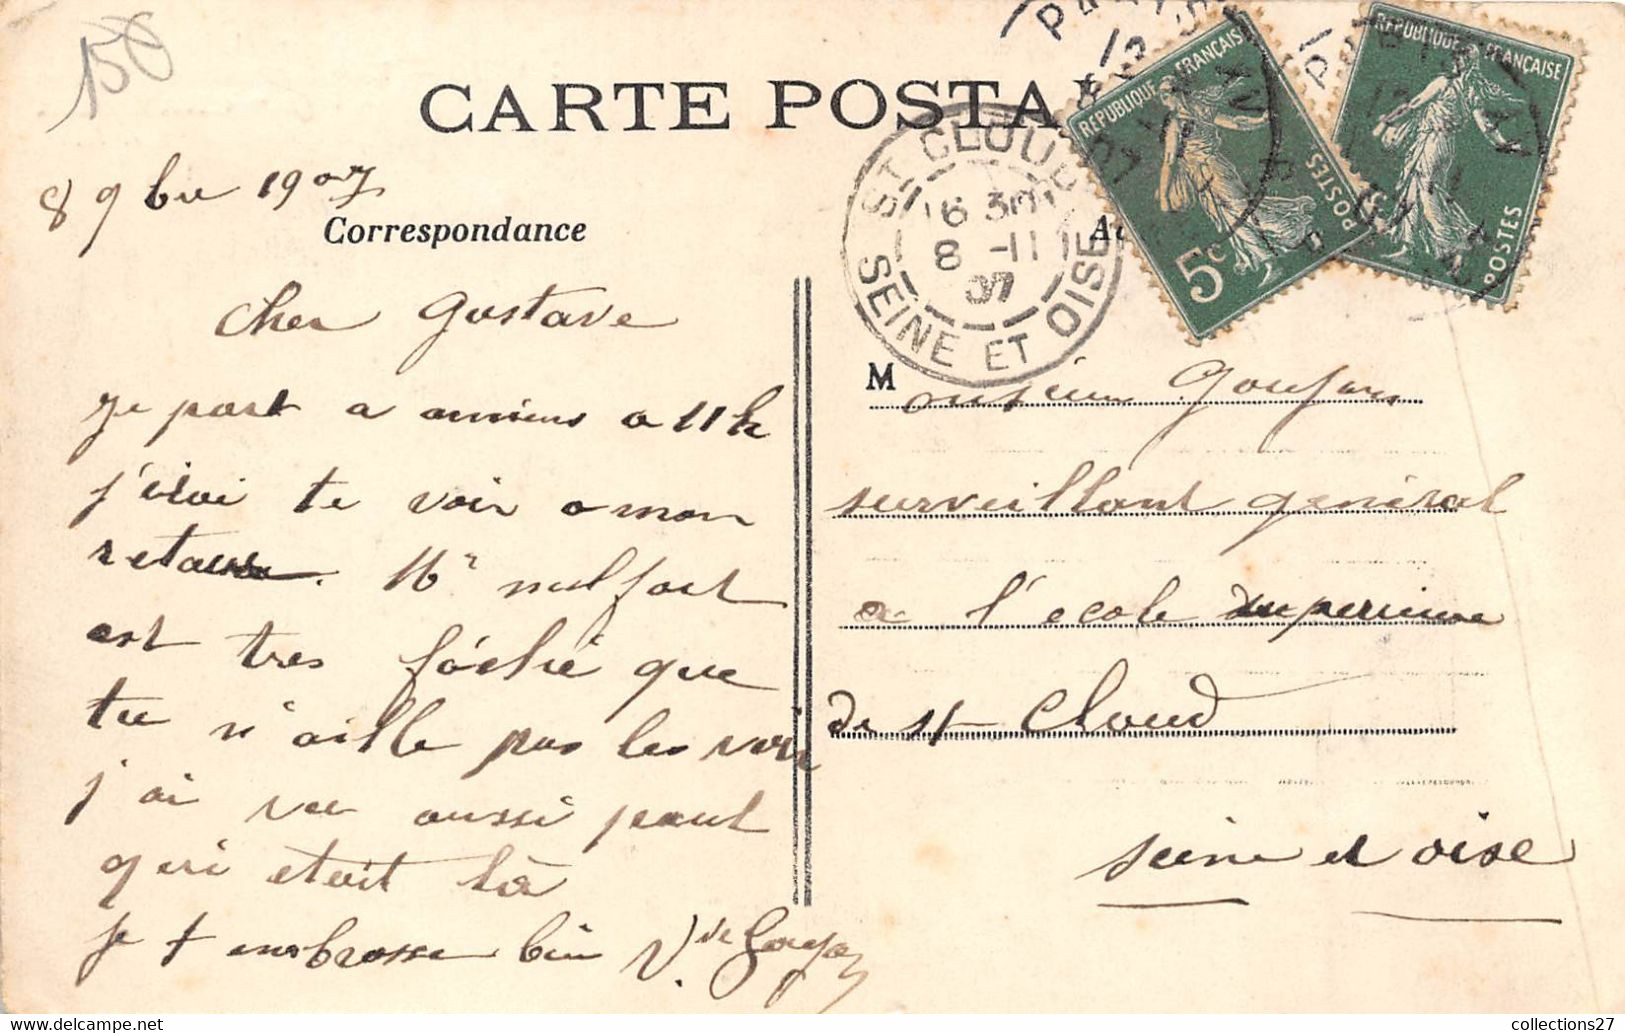 150
CARTE POSTA
8 9bre 1907
Correspondance
cher Gustave
je part a amiens a 11h
j'irai te voir a mon
retour. Mr
est tres fáché que
tu n'aille pas les voir
j'ai vu aussi paul
qui etait là
je t embrasse bien Vve
ST CLOUD
16 30
8 -11
07
SEINE ET OISE
REPUBLIQUE FRANÇAISE
POSTES
5c
REPUBLIQUE FRANÇAISE
POSTES
Monsieur
surveillant général
a l'ecole superieure
de st Cloud
seine et oise
collections27